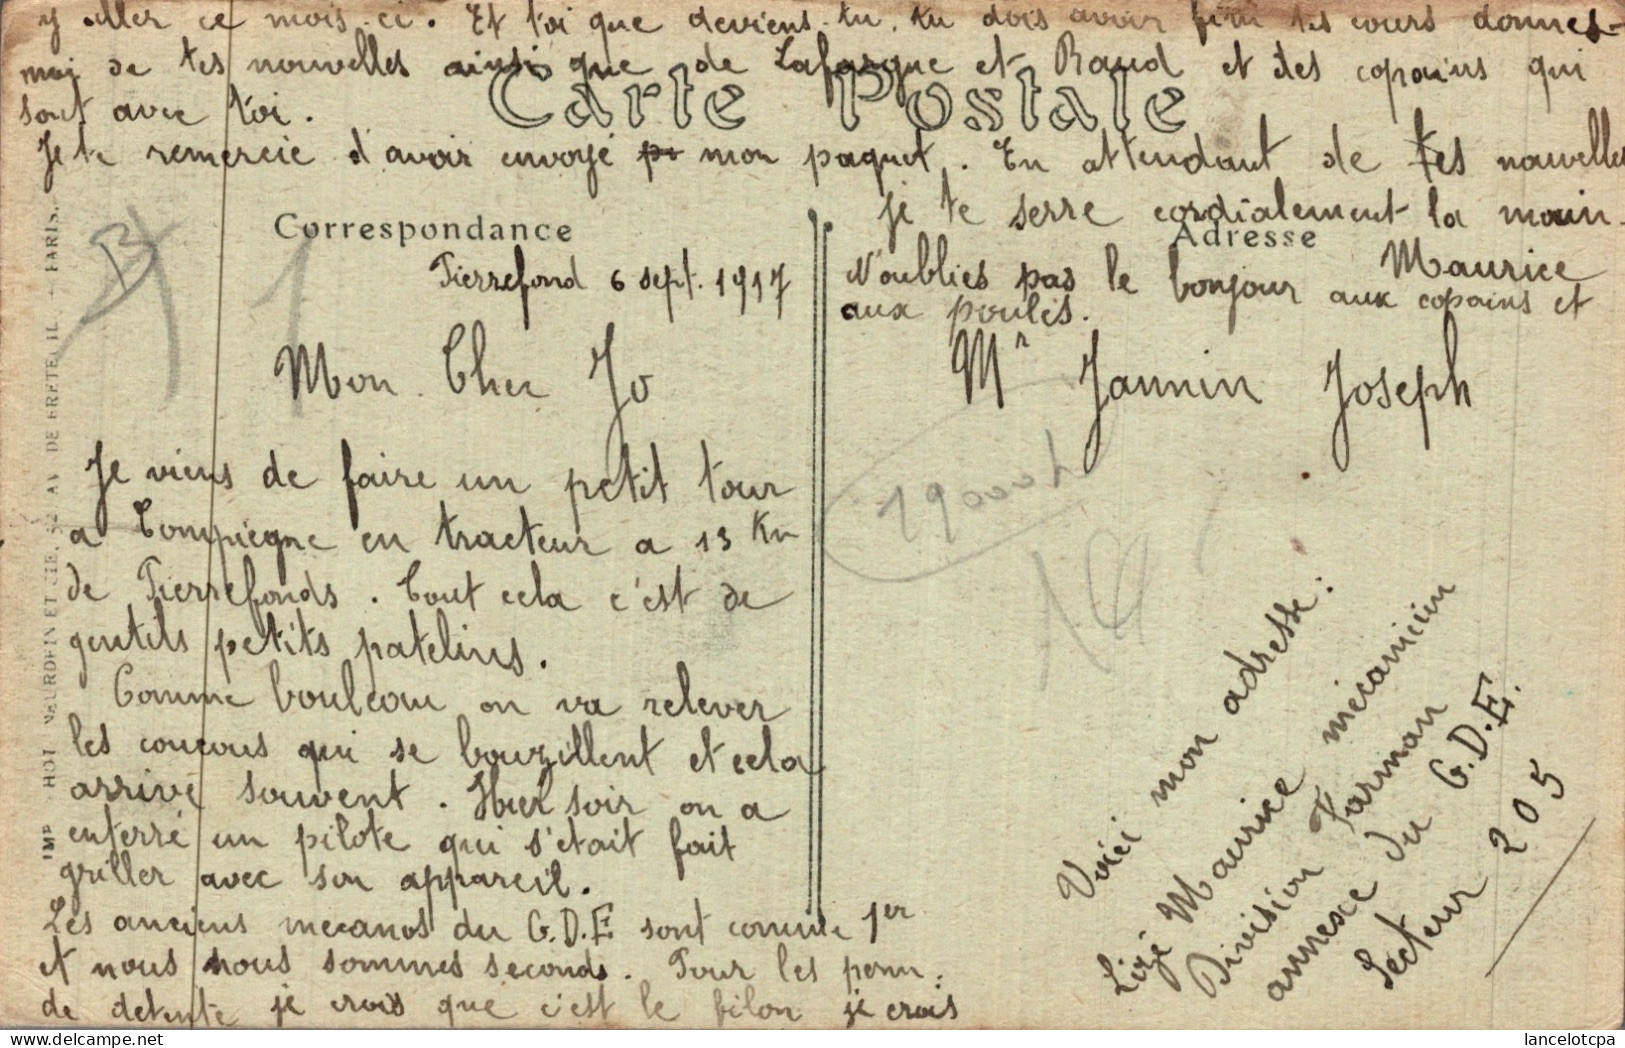 Carte Postale
Correspondance
Adresse
Pierrefond 6 sept. 1917
Mon Cher Jo
Je viens de faire un petit tour
a Compiegne en tracteur a 13 Km
de Pierrefonds. Tout cela c'est de
gentils petits patelins.
Comme bouleau on va relever
les coucous qui se bouzillent et cela
arrive souvent. Hier soir on a
enterré un pilote qui s'était fait
griller avec son appareil.
Les anciens mecanos du G.D.E sont comme 1er
et nous nous sommes seconds. Pour les perm.
de detente je crois que c'est le filon je crois
y aller ce mois-ci. Et toi que deviens-tu, tu dois avoir fini tes cours donnes-
moi de tes nouvelles ainsi que de Lafargue et Raud et des copains qui
sont avec toi.
Je te remercie d'avoir envoyé mon paquet. En attendant de tes nouvelles
je te serre cordialement la main.
Maurice
N'oublies pas le bonjour aux copains et
aux poules.
Mr Jannin Joseph
19000h
Voici mon adresse:
Maurice mécanicien
Division Farman
annexe du G.D.E.
Secteur 205
IMP. PHOT NEURDEIN ET CIE. 52 AV. DE BRETEUIL. - PARIS.
delcampe.net
lancelotcpa